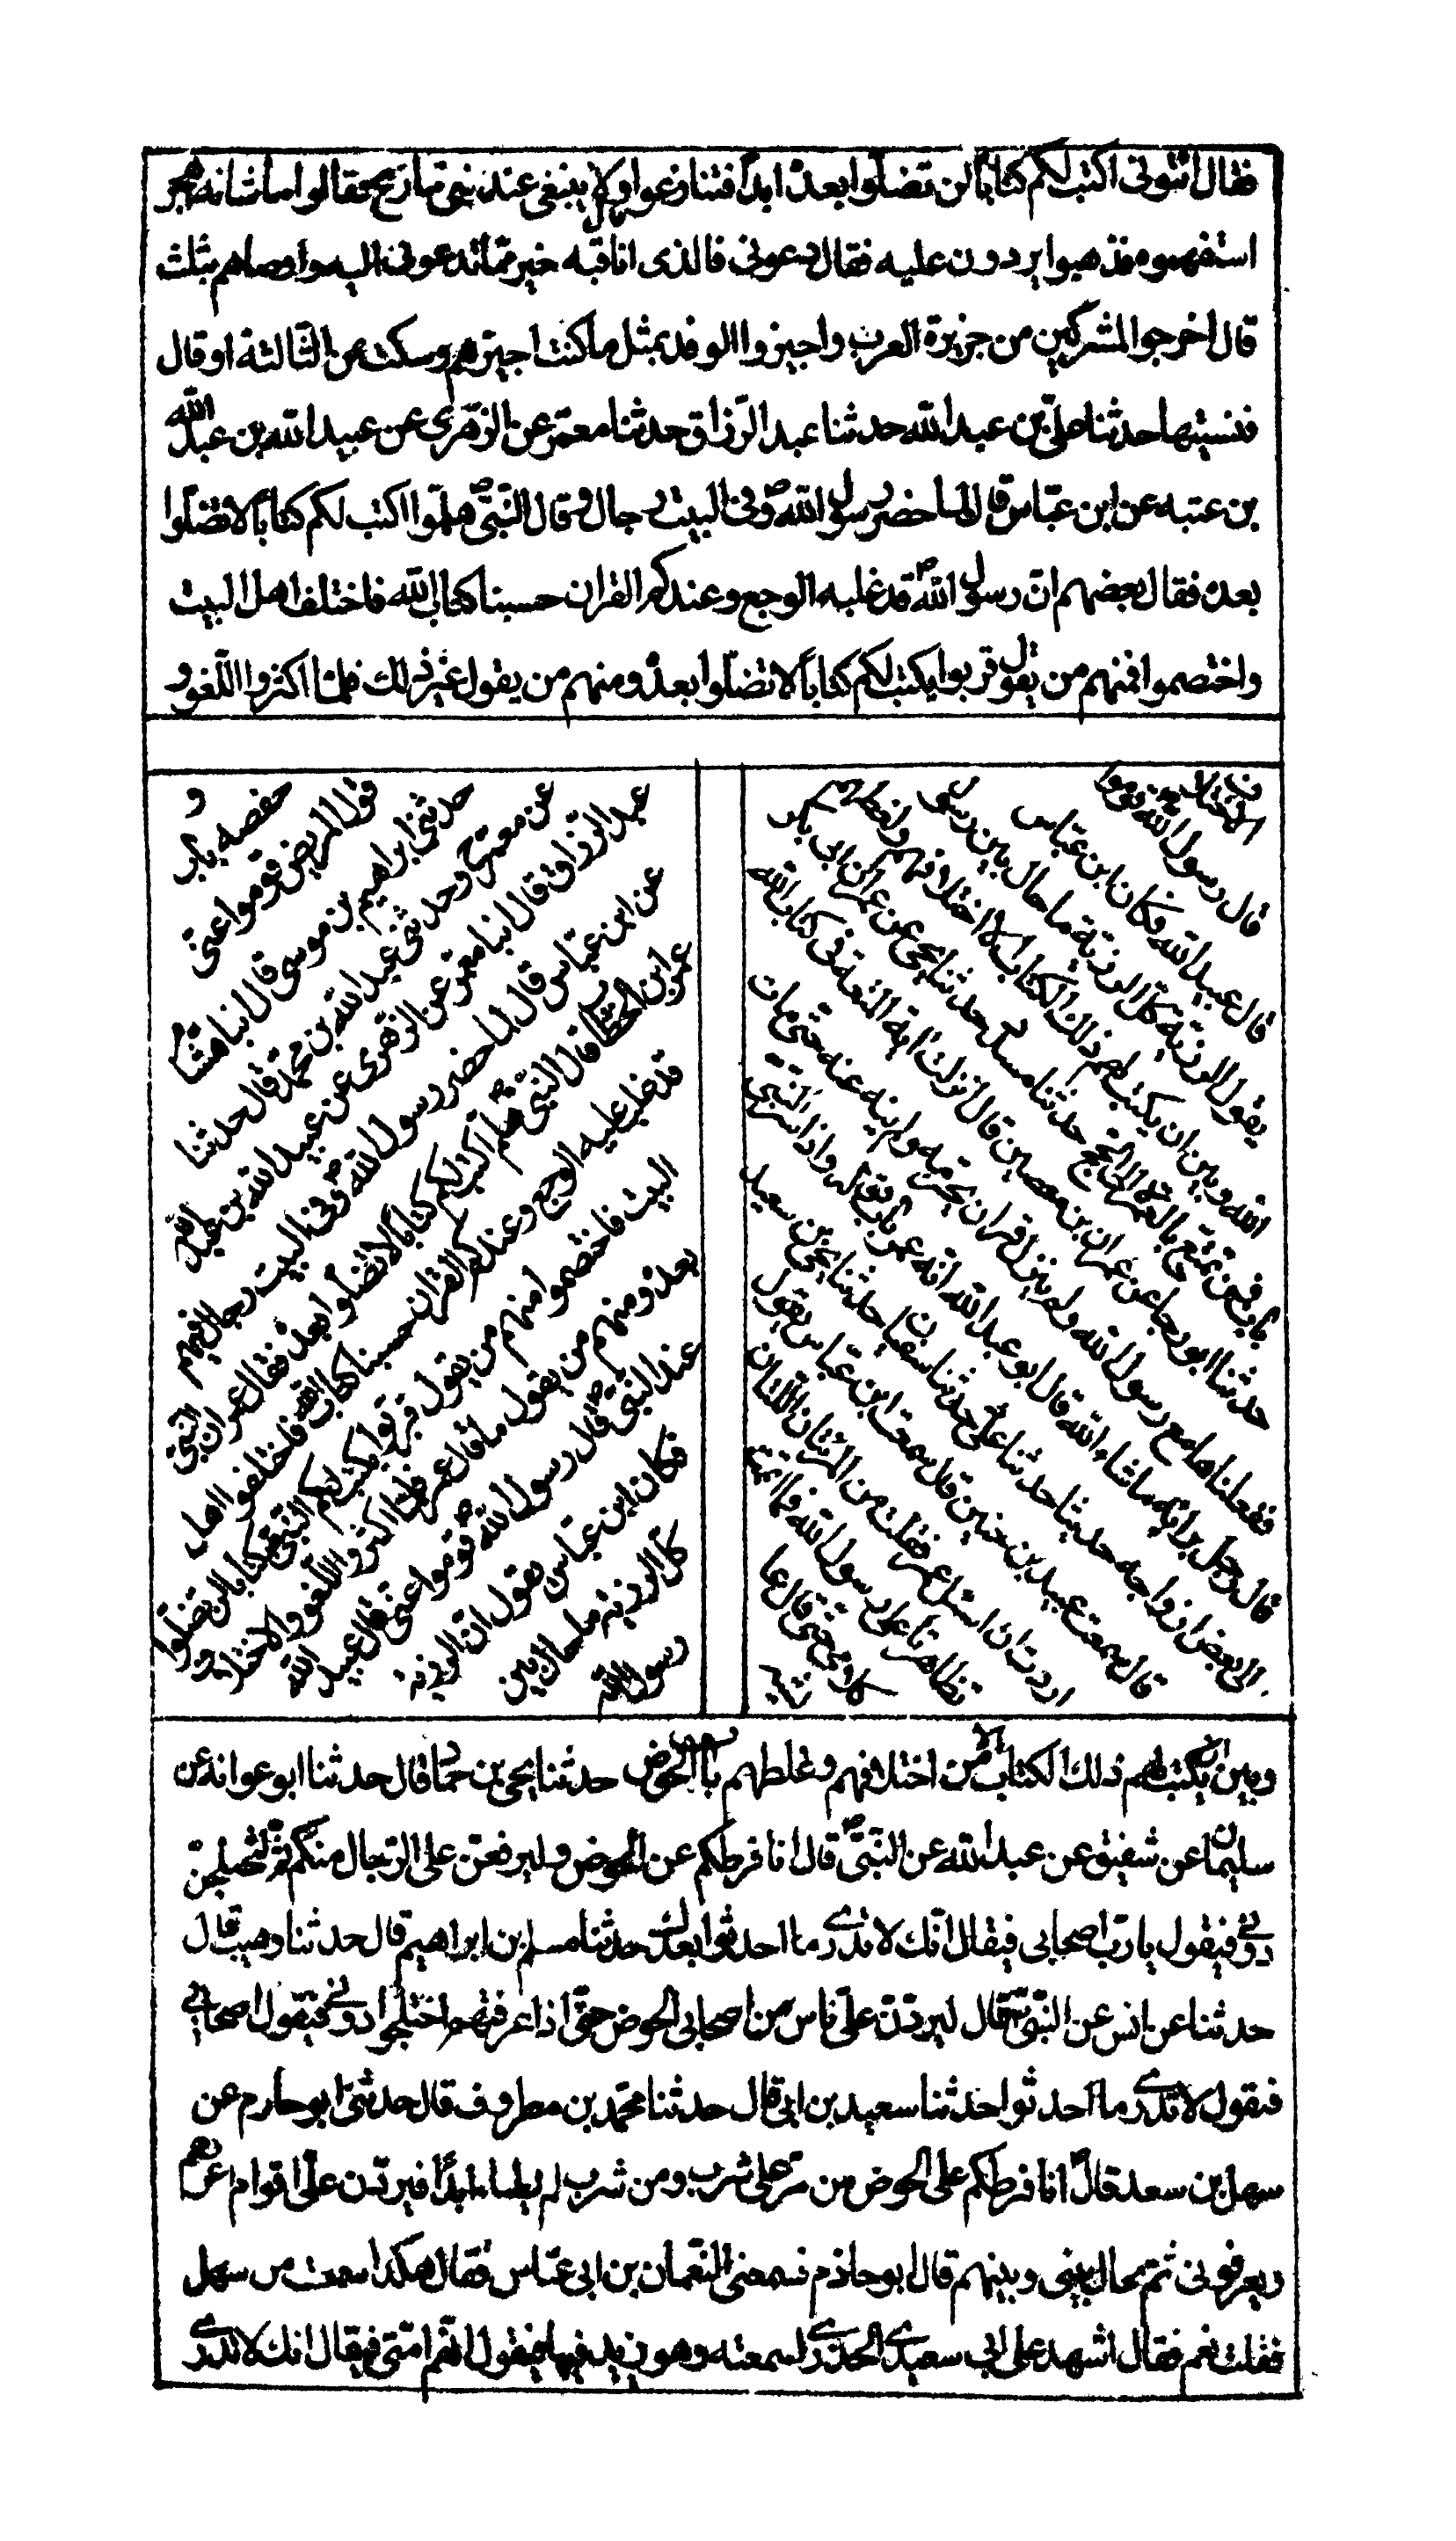 فقال ائتونى اكتب لكم كتابا لن تضلّوا بعده ابدًا فتنازعوا ولا ينبغى عند نبى تنازع فقالوا ما شانه اهجر
استفهموه فذهبوا يردون عليه فقال دعونى فالذى انا فيه خير مما تدعونى اليه واوصاهم بثلث
قال اخرجوا المشركين من جزيرة العرب واجيزوا الوفد بمثل ما كنت اجيزهم وسكت عن الثالثة او قال
فنسيتها حدثنا علىّ بن عبد الله حدثنا عبد الرّزاق حدثنا معمّر عن الزّهرى عن عبيد الله بن عبد الله
بن عتبه عن ابن عبّاس قال لما حضر رسول الله ص وفى البيت رجال وقال النّبىّ ص هلمّوا اكتب لكم كتابًا لا تضلّوا
بعده فقال بعضهم انّ رسول الله ص قد غلبه الوجع وعندكم القران حسبنا كتاب الله فاختلف اهل البيت
واختصموا فمنهم من يقول قربوا يكتب لكم كتابًا لا تضلّوا بعده ومنهم من يقول غير ذلك فلمّا اكثروا اللّغو و
الاختلاف
قال رسول الله قوموا
قال عبيد الله فكان ابن عباس
يقول الرزية كل الرزية ما حال بين رسول
الله وبين ان يكتب لهم ذلك الكتاب لاختلافهم ولغطهم
باب فمن تمتع بالعمرة الى الحج حدثنا مسدد حدثنا يحيى عن عمران ابى بكر
حدثنا ابو رجا عن عمران بن حصين قال انزلت اية المتعة فى كتاب الله
ففعلناها مع رسول الله ولم ينزل قران يحرمه ولم ينه عنه حتى مات
قال رجل برائه ما شاء الله قال ابو عبد الله انه عمر باب قوله واذ اسر النّبى
الى بعض ازواجه حديثا حدثنا علىّ حدثنا سفيان حدثنا يحيى بن سعيد
قال سمعت عبيد بن حنين قال سمعت ابن عباس يقول
اردت ان اسئل عمر فقلت من المرئتان اللتان
تظاهرتا على رسول الله فما اتممت
كلامى حتى قال عا
و
حفصه باب
قول المريض قوموا عنى
حدثنى ابراهيم بن موسى قال انبا هشام
عن معمر ح وحدثنى عبد الله بن محمد قال حدثنا
عبد الرّزاق قال انبا معمر عن الزهرى عن عبيد الله بن عبد الله
عن ابن عبّاس قال لما حضر رسول الله ص وفى البيت رجال فيهم
عمر ابن الخطاب قال النّبى ص هلم اكتب لكم كتابا لا تضلّوا بعده فقال عمر ان النبى
قد غلب عليه الوجع وعندكم القران حسبنا كتاب الله فاختلفوا اهل
البيت فاختصموا منهم من يقول قربوا يكتب لكم النبى كتابا لن تضلّوا
بعده ومنهم من يقول ما قال عمر فلما اكثروا اللّغو والاختلاف
عند النّبى ص قال رسول الله ص قوموا عنى قال عبيد الله
فكان ابن عبّاس يقول انّ الرزيه
كل الرزيه ما حال بين
رسول الله
وبين ان يكتب لهم ذلك الكتاب من اختلافهم وغلطهم باب الحوض حدثنا يحيى بن حمّاد قال حدثنا ابو عوانه عن
سليمان عن شقيق عن عبد الله عن النّبىّ ص قال انا فرطكم على الحوض وليرفعن علىّ الرّجال منكم ثم ليختلجن
دونى فيقول يا ربّ اصحابى فيقال انّك لا تدرى ما احدثوا بعدك حدثنا مسلم بن ابراهيم قال حدثنا وهيب قال
حدثنا عن انس عن النّبى ص قال ليردّن علىّ ناس من اصحابى الحوض حتّى اذا عرفتهم اختلجوا دونى فيقول اصحابى
فيقول لا تدرى ما احدثوا حدثنا سعيد بن ابى قال حدثنا محمّد بن مطروف قال حدثنى ابو حازم عن
سهل بن سعد قال انا فرطكم على الحوض من مرّ على شرب ومن شرب لم يظماء ابدًا فيردّن علىّ اقوام اعرفهم
ويعرفونى ثم يحال بينى وبينهم قال ابو حازم فسمعنى النعمان بن ابى عبّاس فقال هكذا سمعت من سهل
فقلت نعم فقال اشهد على ابى سعيد الخدرى لسمعته وهو يزيد فيها فيقول انّهم امّتى فيقال انك لا تدرى